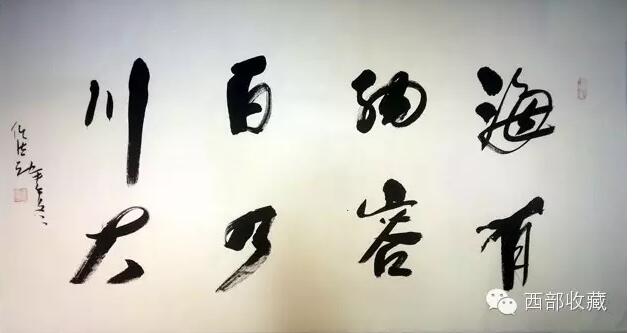 海纳百川
有容乃大
西部收藏